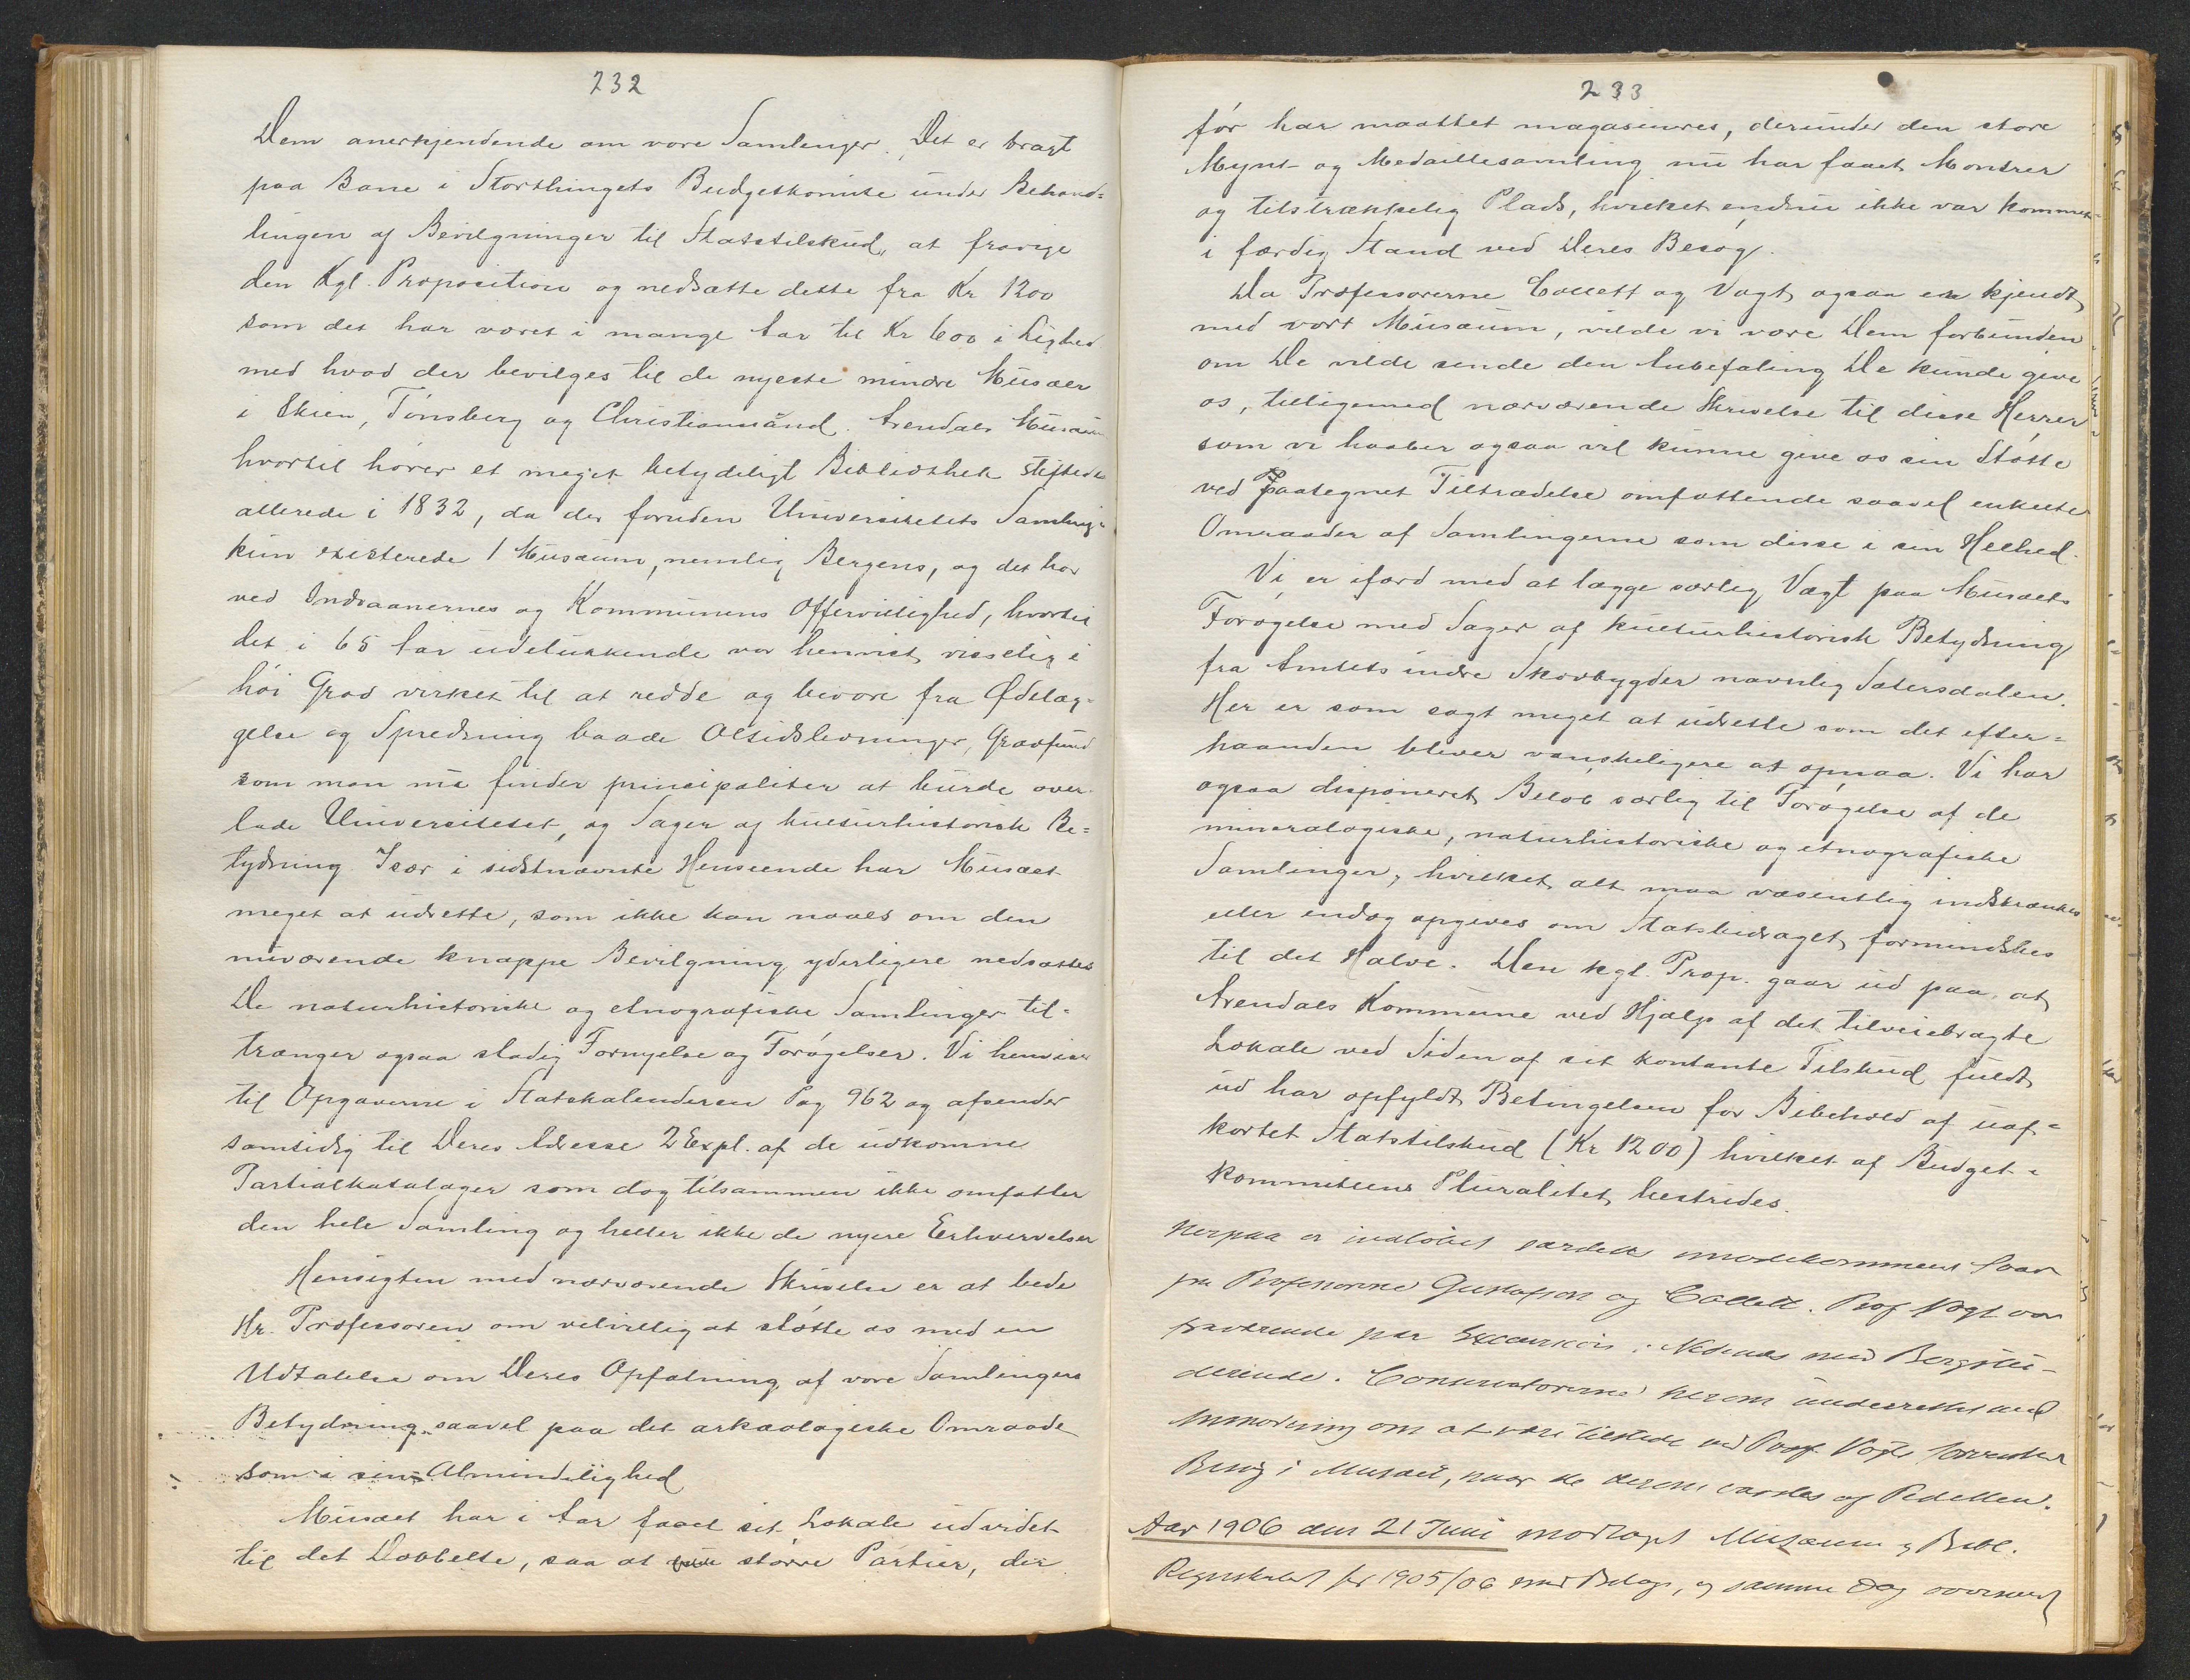 232
Dem anerkjendende om vore Samlinger. Det er bragt
paa Bane i Storthingets Budgetkomite under Behand=
lingen af Bevilgninger til Statstilskud, at fravige
den Kgl. Proposition og nedsætte dette fra Kr 1200
som det har været i mange Aar til Kr 600 i Lighed
med hvad der bevilges til de nyeste mindre Musæer
i Skien, Tønsberg og Christianssand. Arendals Musæum
hvortil hører et meget betydeligt Bibliothek stiftedes
allerede i 1832, da der foruden Universitetets Samling=
kun existerede 1 Musæum, nemlig Bergens, og det har
ved Indvaanernes og Kommunens Offervillighed, hvortil
det i 65 Aar udelukkende var henvist, visselig i
høi Grad virket til at redde og bevare fra Ødelæg=
gelse og Spredning baade Oltidslevninger, Gravfund
som man nu finder principaliter at burde over=
lade Universitetet, og Sager af kulturhistorisk Be=
tydning. Især i sidstnævnte Henseende har Musæet
meget at udrette, som ikke kan naaes om den
nuværende knappe Bevilgning yderligere nedsættes
De naturhistoriske og etnografiske Samlinger til=
trænger ogsaa stadig Fornyelse og Forøgelser. Vi henviser
til Opgaverne i Statskalenderen Pag 962 og afsender
samtidig til Deres Adresse 2 Expl. af de udkomne
Partialkataloger som dog tilsammen ikke omfatter
den hele Samling og heller ikke de nyere Erhvervelser
Hensigten med nærværende Skrivelse er at bede
Hr. Professoren om velvillig at støtte os med en
Udtalelse om Deres Opfatning af vore Samlingers
Betydning saavel paa det arkæologiske Omraade
som i sin Almindelighed
Musæet har i Aar faaet sit Lokale udvidet
til det Dobbelte, saa at større Partier, der
233
før har maattet magasineres, derunder den store
Mynt- og Medaillesamling nu har faaet Montrer
og tilstrækkelig Plads, hvilket endnu ikke var kommet
i færdig Stand ved Deres Besøg.
Da Professorerne Collett og Vogt ogsaa er kjendt
med vort Musæum, vilde vi være Dem forbunden
om De vilde sende den Anbefaling De kunde give
os, tilligemed nærværende Skrivelse til disse Herrer
som vi haaber ogsaa vil kunne give os sin Støtte
ved paategnet Tiltrædelse omfattende saavel enkelte
Omraader af Samlingerne som disse i sin Helhed.
Vi er ifærd med at lægge særlig Vægt paa Musæets
Forøgelse med Sager af kulturhistorisk Betydning
fra Amtets indre Skovbygder navnlig Sætersdalen.
Her er som sagt meget at udrette som det efter=
haanden bliver vanskeligere at opnaa. Vi har
ogsaa disponeret Beløb særlig til Forøgelse af de
mineralogiske, naturhistoriske og etnografiske
Samlinger, hvilket alt maa væsentlig indskrænkes
eller endog opgives om Statsbidraget formindskes
til det Halve. Den kgl. Prop. gaar ud paa, at
Arendals Kommune ved Hjælp af det tilveiebragte
Lokale ved Siden af sit kontante Tilskud fuldt
ud har opfyldt Betingelsen for Bibehold af uaf=
kortet Statstilskud (Kr 1200) hvilket af Budget=
kommiteens Pluralitet bestrides.
Herpaa er indløbet særdeles imødekommende Svar
fra Professorerne Gustafson og Collett. Prof Vogt var
fraværende paa Excursion i Nedenæs med Bergstu-
derende. Conservatorerne herom underrettet med
Anmodning om at være tilstede ved Prof Vogts forventede
Besøg i Musæet, naar de derom varsles af Pedellen.
Aar 1906 den 21 Juni modtaget Musæum & Bibl.
Regnskabet for 1905/06 med Bilag, og samme Dag oversendt